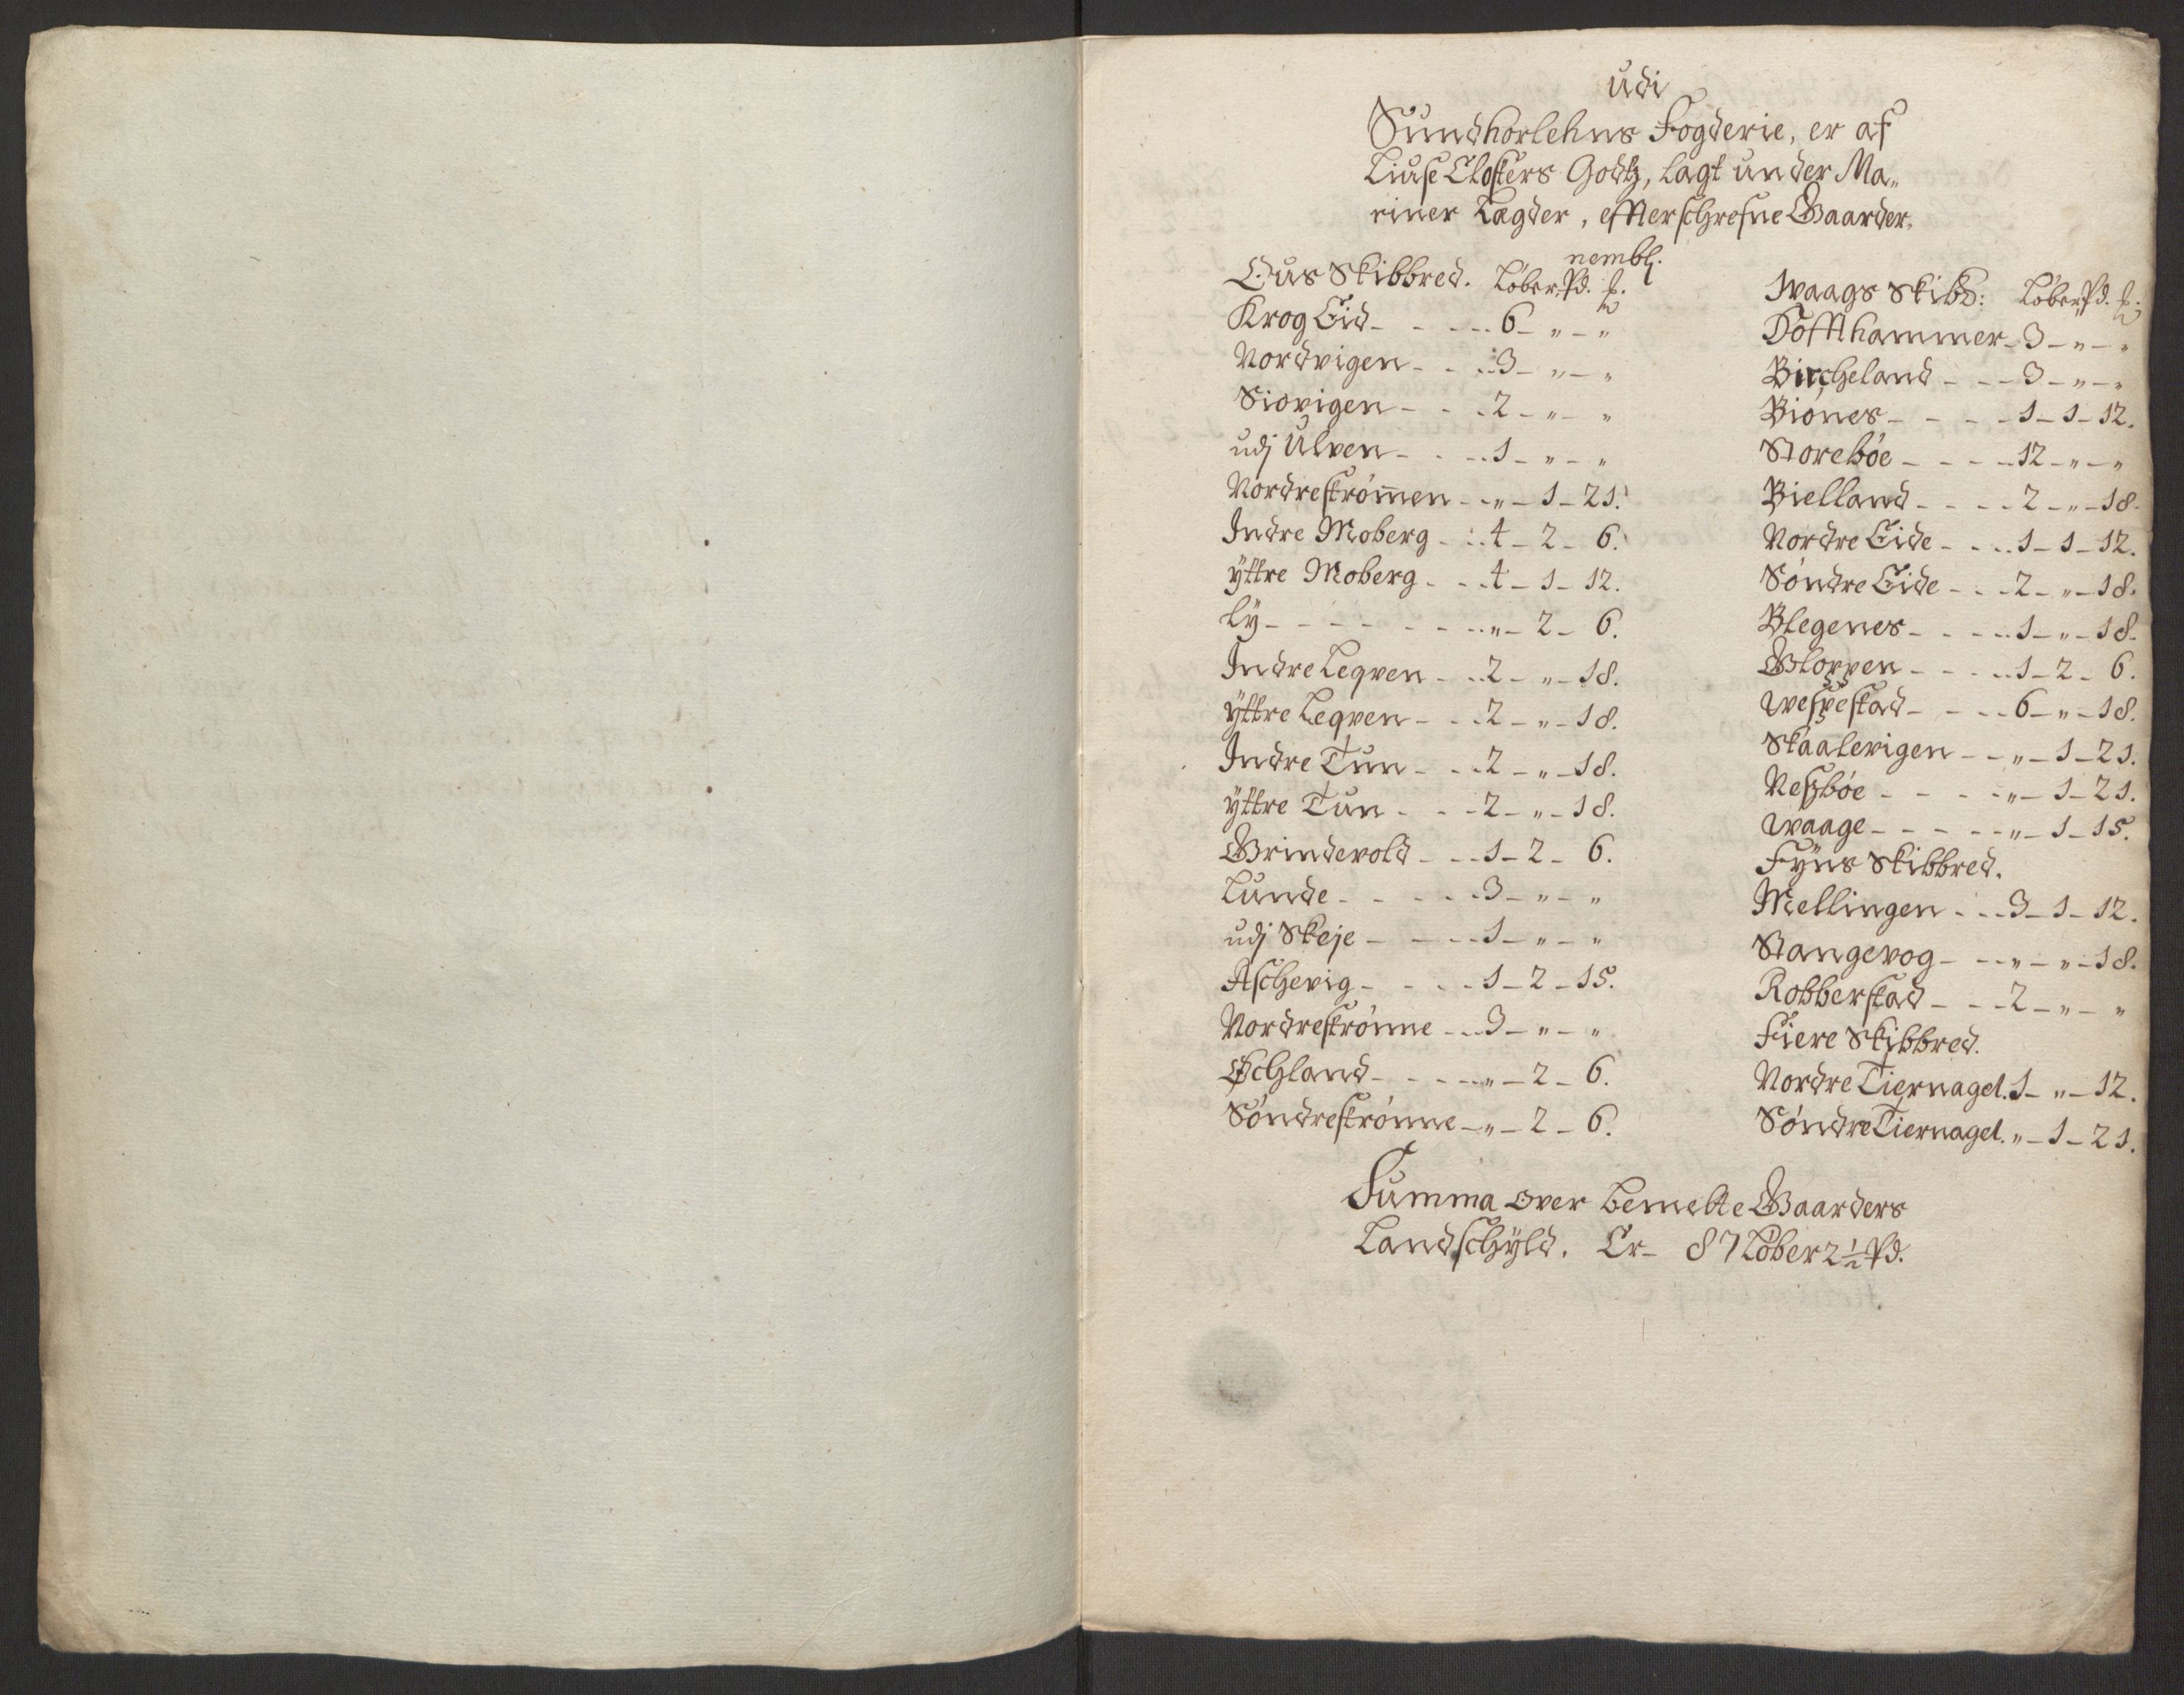 udi
Sundhorlehns Fogderie, er af
Liuse Closters Godtz, lagt under Ma„
riner Lægder, effterschrefne Gaarder,
nembl.
Ous Skibbred. Løber Pd. ℔.
Krog Eid - - - - 6 - „ - „
Nordvigen - - - 3 - „ - „
Siovigen - - - 2 - „ - „
udj Ulven - - - 1 - „ - „
Nordrestrømen - - „ - 1 - 21.
Indre Moberg - - 4 - 2 - 6.
ÿttre Moberg - - 4 - 1 - 12.
Lÿ - - - - - - - „ - 2 - 6.
Indre Leqven - - 2 - „ - 18.
ÿttre Leqven - - 2 - „ - 18.
Indre Tun - - - 2 - „ - 18.
ÿttre Tun - - - 2 - „ - 18.
Grindevold - - - 1 - 2 - 6.
Lunde - - - - - 3 - „ - „
udj Skeje - - - - 1 - „ - „
Aschevig - - - - 1 - 2 - 15.
Nordrestrønne - - 3 - „ - „
Øchland - - - - - „ - 2 - 6.
Søndrestrønne - „ - 2 - 6.
Waags Skibb: Løber Pd. ℔.
Toffthammer - 3 - „ - „
Bircheland - - - 3 - „ - „
Biønes - - - - - 1 - 1 - 12.
Storebøe - - - - 12 - „ - „
Bielland - - - - 2 - „ - 18.
Nordre Eide - - - 1 - 1 - 12.
Søndre Eide - - - 2 - „ - 18.
Blegenes - - - - 1 - „ - 18.
Gloppen - - - - 1 - 2 - 6.
Wespestad - - - - 6 - „ - 18.
Skaalevigen - - „ - 1 - 21.
Neszbøe - - - - - „ - 1 - 21.
Waage - - - - - - „ - 1 - 15.
Fÿns Skibbred.
Mellingen - - - 3 - 1 - 12.
Stangevog - - - „ - „ - 18.
Robberstad - - - 2 - „ - „
Fiere Skibbred.
Nordre Tiernagel. 1 - „ - 12.
Søndre Tiernagel. „ - 1 - 21.
Summa over bemelte Gaarders
Landschÿld. Er - 87 Løber 2 ½ Pd.